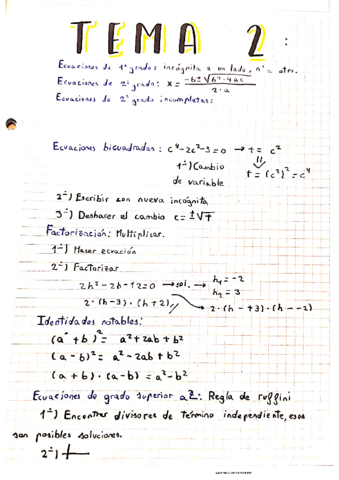 TEMA 2:
Ecuaciones de 1º grado: incógnita a un lado, nº a otro.
Ecuaciones de 2º grado: x = -b±√b²-4ac / 2·a
Ecuaciones de 2º grado incompletas:
Ecuaciones bicuadradas: c⁴-2c²-3=0 → t = c²
1º) Cambio de variable
t = (c²)² = c⁴
2º) Escribir con nueva incógnita
3º) Deshacer el cambio c = ±√T
Factorización: Multiplicar.
1º) Hacer ecuación
2º) Factorizar
2h²-2h-12=0 → sol. → h₁ = -2
h₂ = 3
2·(h-3)·(h+2) → 2·(h-+3)·(h--2)
Identidades notables:
(a+b)² = a²+2ab+b²
(a-b)² = a²-2ab+b²
(a+b)·(a-b) = a²-b²
Ecuaciones de grado superior a 2: Regla de ruffini
1º) Encontrar divisores de término independiente, esos
son posibles soluciones.
2º)